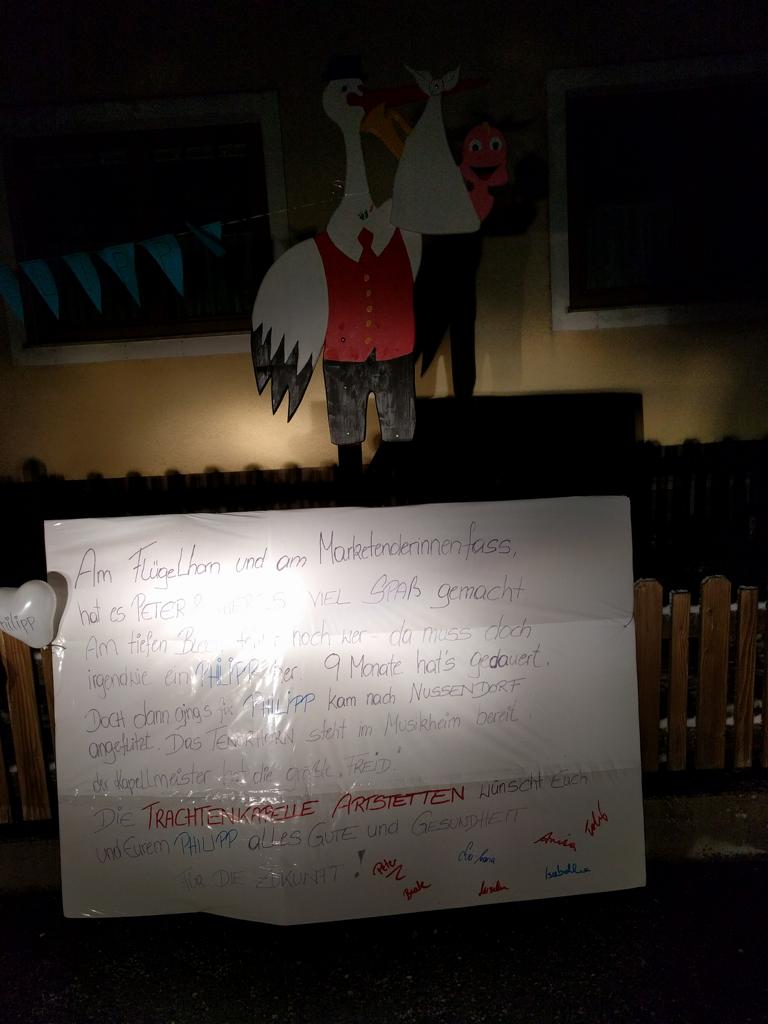 Am Flügelhorn und am Marketenderinnenfass,
hat es PETER VIEL SPAß gemacht
Am tiefen noch wer - da muss doch
irgendwie ein PHILIPP her. 9 Monate hat's gedauert.
Doch dann ging's für PHILIPP kam nach NUSSENDORF
angeflitzt. Das TENORHORN steht im Musikheim bereit.
der Kapellmeister hat die größte FREID!
Die TRACHTENKAPELLE ARTSTETTEN wünscht Euch
und Eurem PHILIPP alles GUTE und GESUNDHEIT
für DIE ZUKUNFT!
Peter
Beate
Anina
Isabella